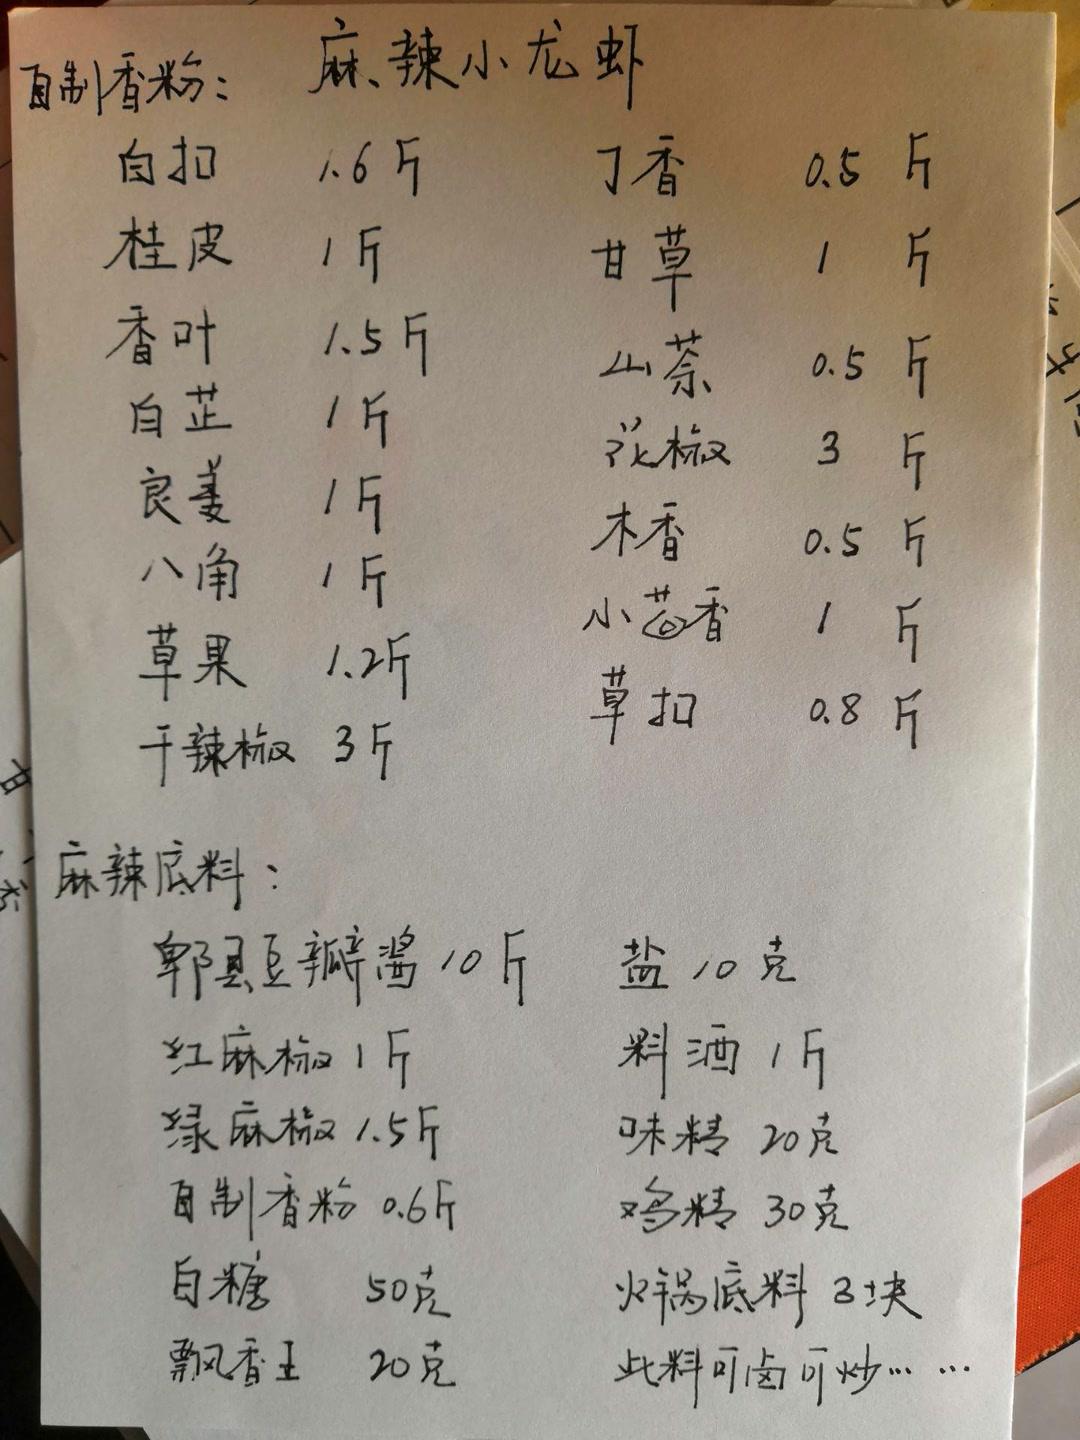 麻辣小龙虾
自制香粉：
白扣 1.6斤 丁香 0.5斤
桂皮 1斤 甘草 1斤
香叶 1.5斤 山萘 0.5斤
白芷 1斤 花椒 3斤
良姜 1斤 木香 0.5斤
八角 1斤 小茴香 1斤
草果 1.2斤 草扣 0.8斤
干辣椒 3斤
麻辣底料：
郫县豆瓣酱 10斤 盐 10克
红麻椒 1斤 料酒 1斤
绿麻椒 1.5斤 味精 20克
自制香粉 0.6斤 鸡精 30克
白糖 50克 火锅底料 3块
飘香王 20克 此料可卤可炒……